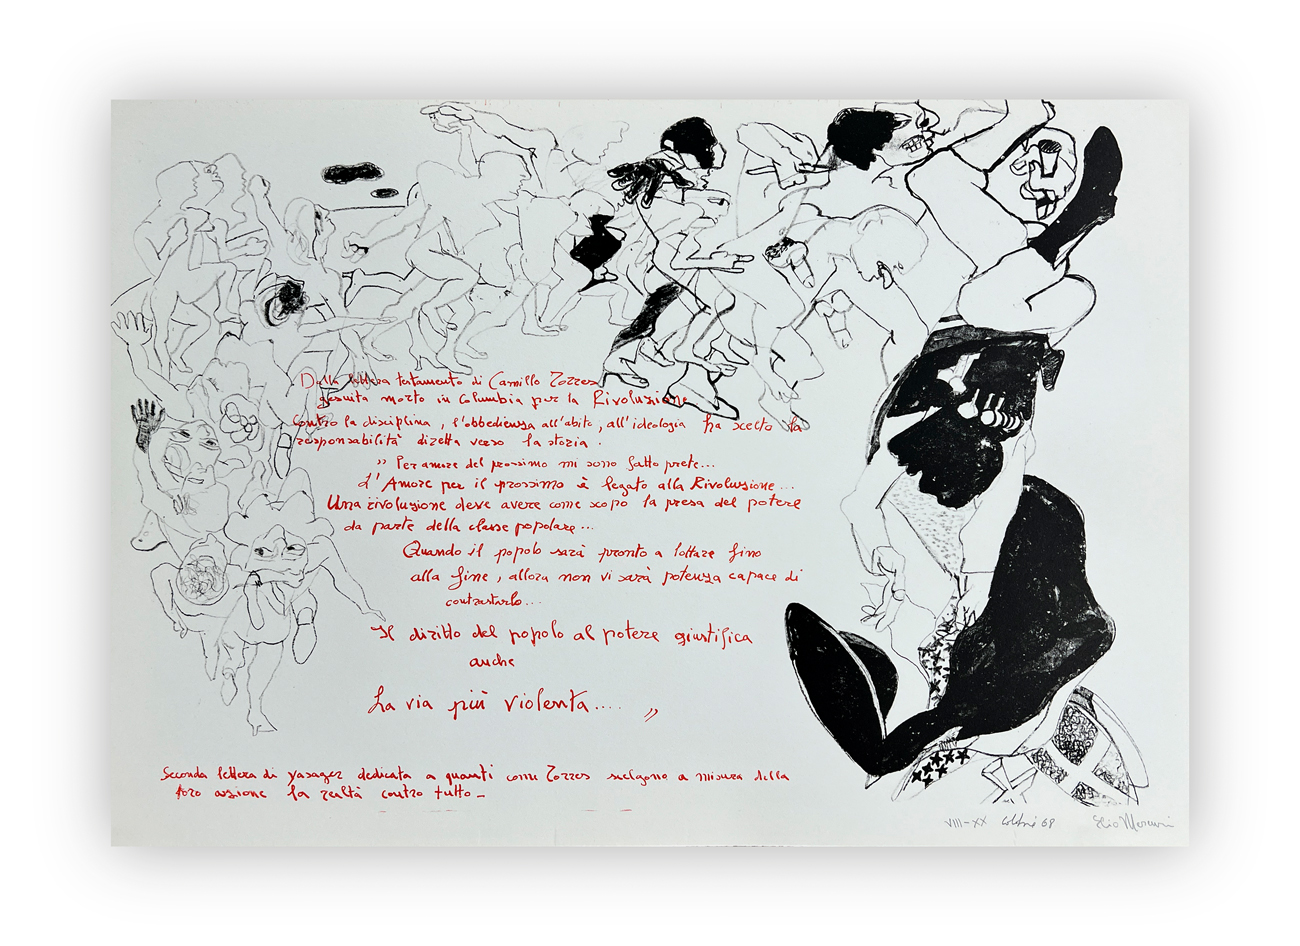 Dalla lettera testamento di Camillo Torres
gesuita morto in Columbia per la Rivoluzione
Contro la disciplina, l'obbedienza all'abito, all'ideologia ha scelto la
responsabilità diretta verso la storia.
" Per amore del prossimo mi sono fatto prete...
L'Amore per il prossimo è legato alla Rivoluzione...
Una rivoluzione deve avere come scopo la presa del potere
da parte della classe popolare...
Quando il popolo sarà pronto a lottare fino
alla fine, allora non vi sarà potenza capace di
contrastarlo...
Il diritto del popolo al potere giustifica
anche
La via più violenta.... "
Seconda lettera di Yasager dedicata a quanti come Torres scelgono a misura della
loro azione la realtà contro tutto -
VIII-XX 69 Elio Mercuri